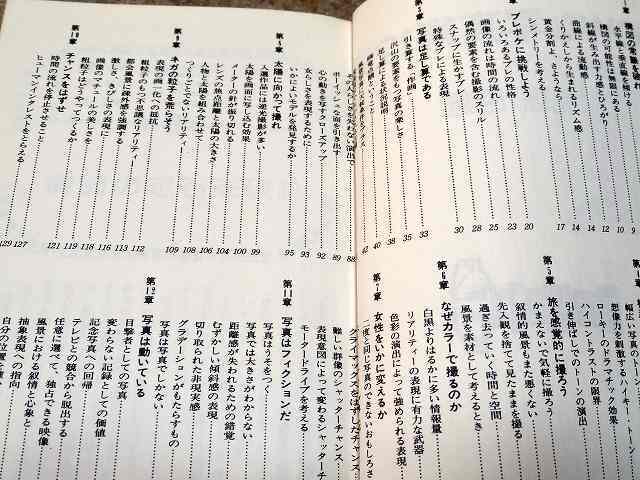 構図の可能性は無限にある
斜線が生み出す力感とひろがり
曲線による流動感
くりかえしから生まれるリズム感
黄金分割よ、さようなら
シンメトリーを考える 17
ブレボケに挑戦しよう
いろいろあるブレの性格 20
画像の流れは時間の流れ 23
偶然の要素を含む撮影のスリル 25
スナップに生かすブレ 28
特殊なブレによる表現 30
第3章 写真は足し算である
引き算する「作画」 33
沢山の要素をもつ写真の楽しさ 35
足し算による状況説明 38
想像力を刺激するハイキー・トーン
ローキーのドラマチック効果
ハイコントラストの限界
引き伸ばしでのトーンの演出
第5章 旅を感覚的に撮ろう
かまえないで気軽に撮ろう
叙情的風景もまた悪くない
先入観を捨てて見たままを撮る
過ぎ去っていく時間と空間
風景を素材として考えるとき
第6章 なぜカラーで撮るのか
白黒よりはるかに多い情報量
リアリティーの表現に有力な武器
色彩の演出によって強められる表現
第7章 女性をいかに変えるか
二度と同じ写真のできないおもしろさ
ポーイッシュな面を引き出す
心の動きを写すクローズアップ
女らしさを表現するために
いかによいモデルを発見するか 95
第8章 太陽に向かって撮れ
入選作品には逆光撮影が多い 99
太陽を画面に写し込む効果 100
メーターの針が振り切れる 104
レンズの焦点距離と太陽の大きさ 106
人物と太陽を組み合わせて 108
つくりごとでないリアリティー 109
第9章 ネガの粒子を荒らそう
表現の画一化への抵抗
粗粒子のもつ不思議なリアリティー 112
都会風景に疎外感を強調する 113
激しさ、きびしさの表現に 116
画像のマチュールの美しさを 118
粗粒子はどうやってつくるか 119
第10章 チャンスをはずせ
時間の流れを停止させること 127
ヒューマンインタレストをとらえる 129
クライマックスをはずしたチャンス
難しい群像のシャッターチャンス
表現意図によって変わるシャッターチ
モータードライブを考える
第11章 写真はフィクションだ
写真はうそをつく
写真では大きさがわからない
距離感が失われるための錯覚
むずかしい傾斜感の表現
切り取られた非現実感
グラデーションがもたらすもの
写真は写真でしかない
第12章 写真は動いている
目撃者としての写真
変わらない記録としての価値
記念写真への回帰
テレビとの競合から脱出する
任意に選べて、独占できる映像
風景における叙情と心象と
抽象表現への指向